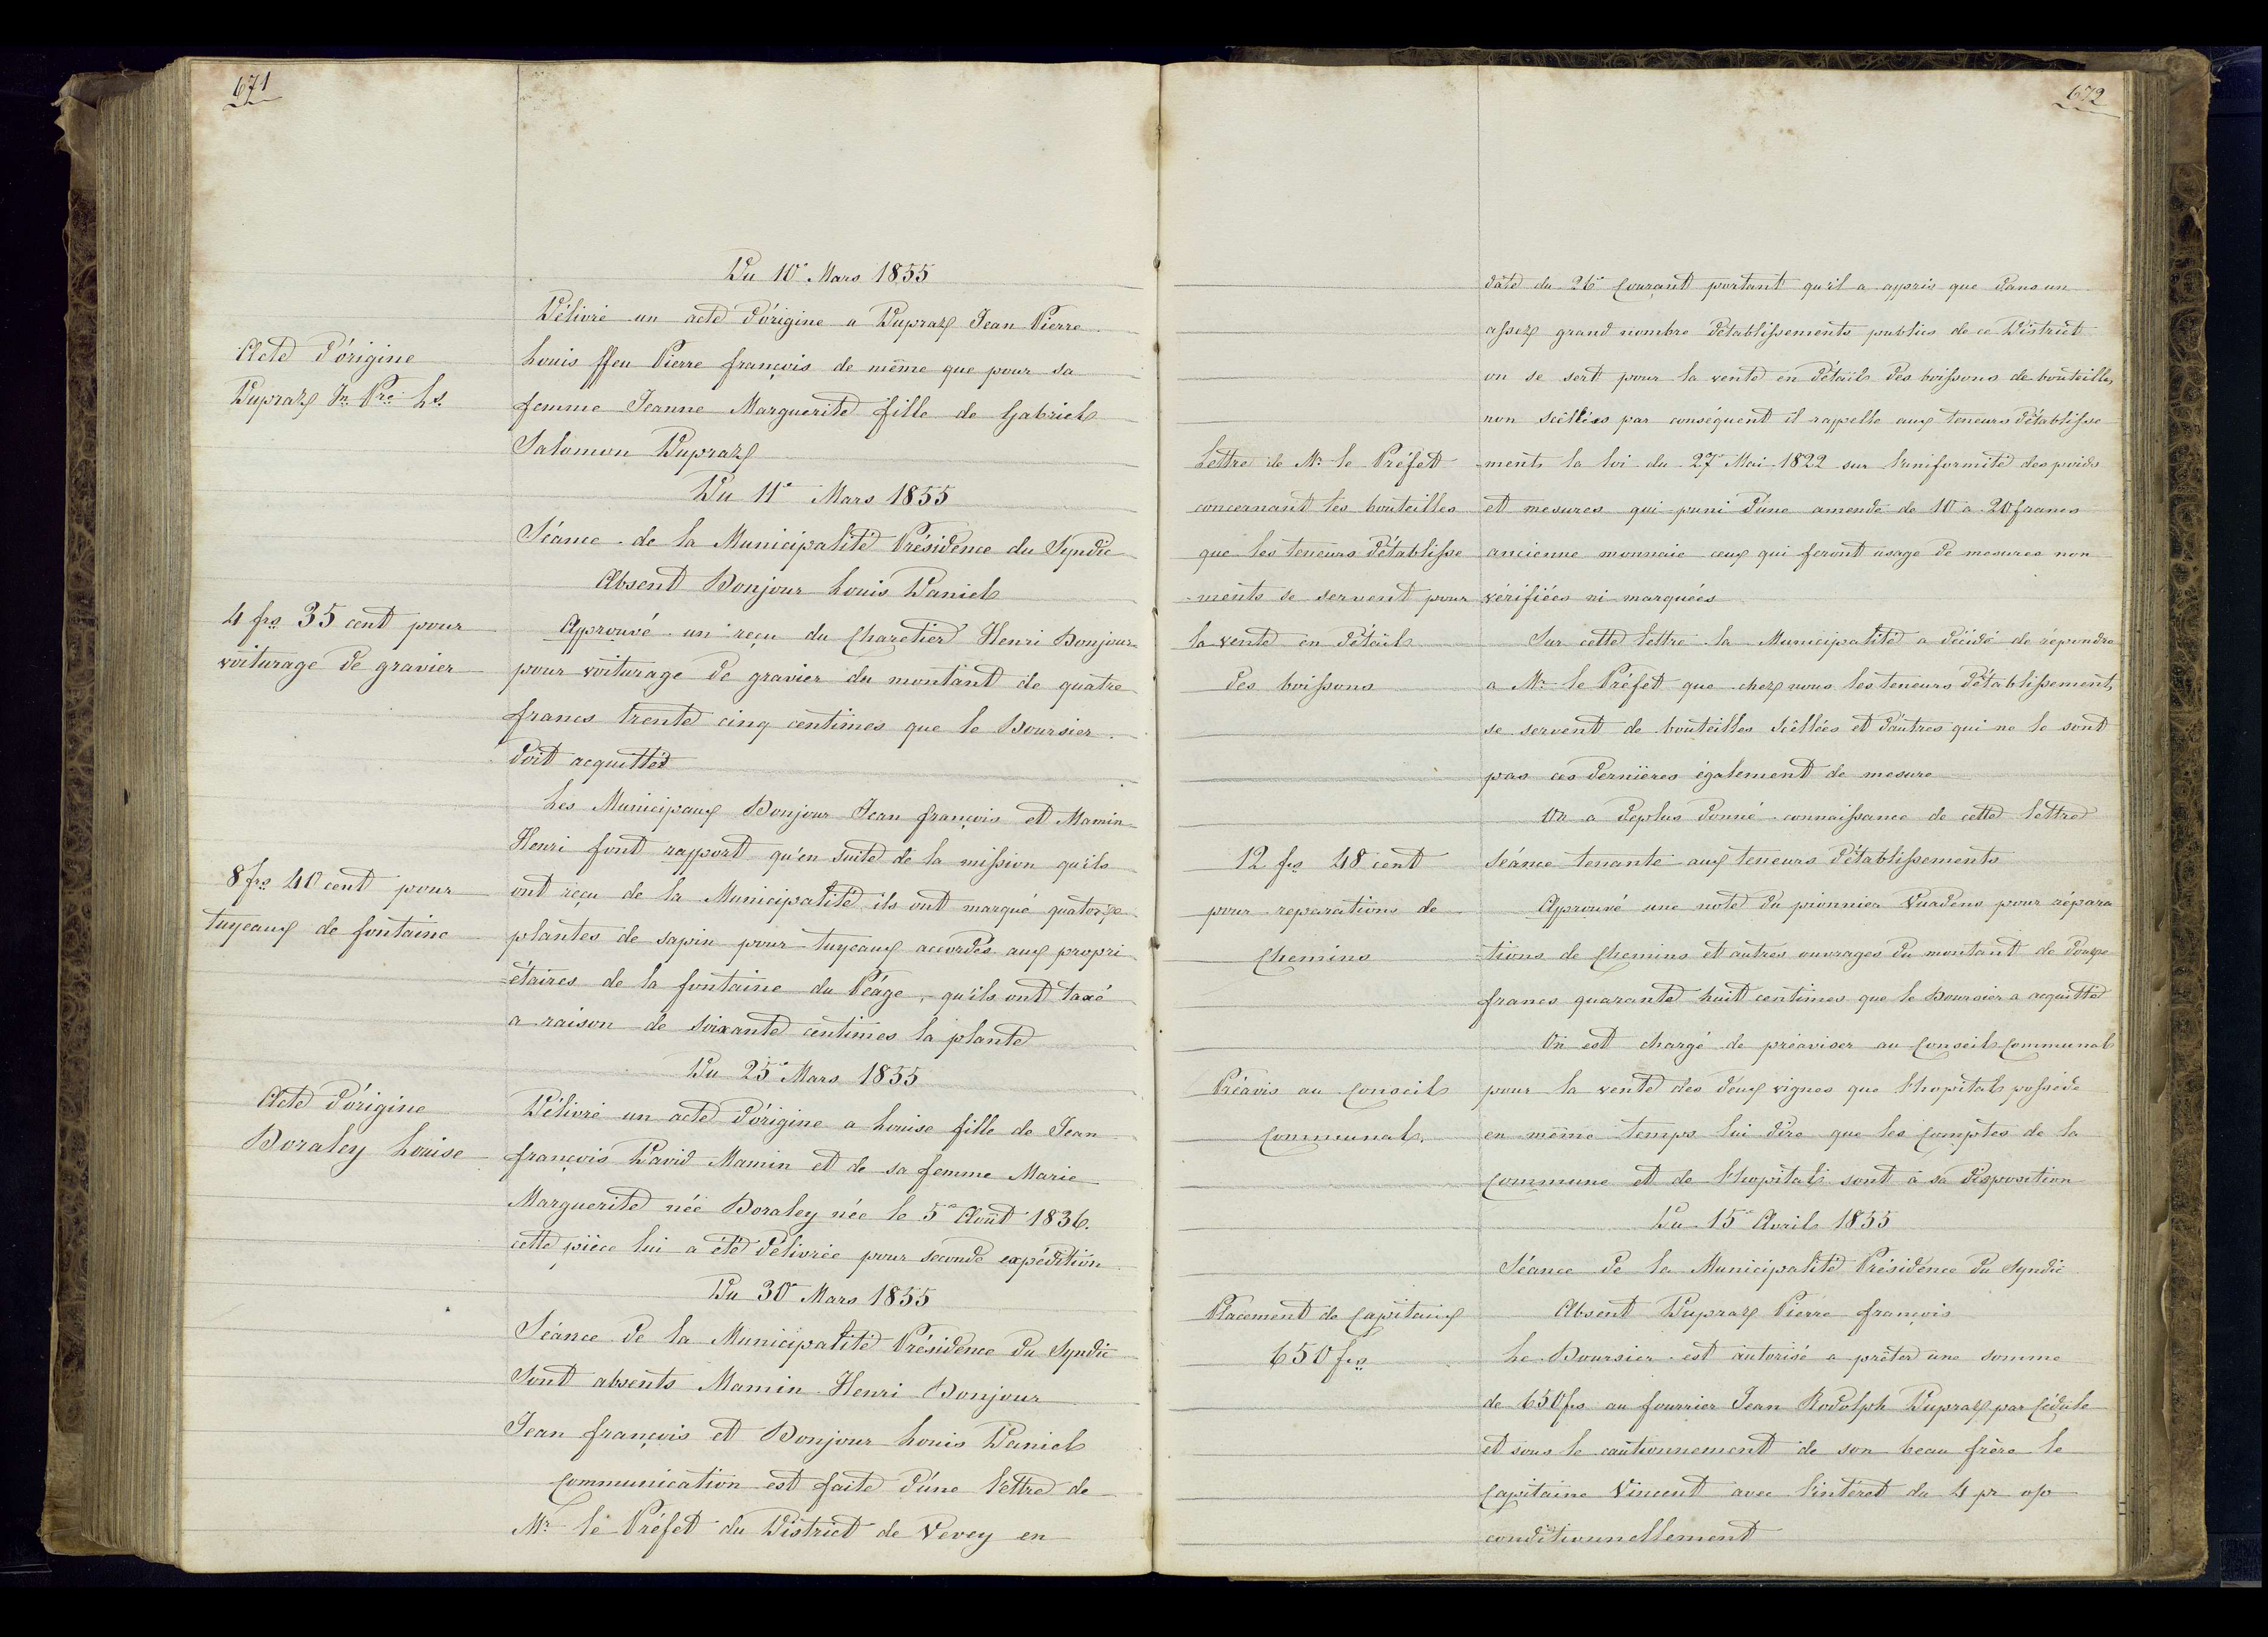 671
Du 10e Mars 1855
Délivré un acte d'origine a Dupraz Jean Pierre
Acte d'origine
Dupraz Jn Pre Ls.
Louis ffeu Pierre françois de même que pour sa
femme Jeanne Marguerite fille de Gabriel
Salomon Dupraz
Du 11e Mars 1855
Séance de la Municipalité Présidence du Syndic
Absent Bonjour Louis Daniel
4 frs 35 cent pour
voiturage de gravier
Approuvé un reçu du Charetier Henri Bonjour
pour voiturage de gravier du montant de quatre
francs trente cinq centimes que le Boursier
doit acquitter
Les Municipaux Bonjour Jean françois et Mamin
Henri font rapport qu'en suite de la mission qu'ils
8 frs 40 cent pour
tuyeaux de fontaine
ont reçu de la Municipalité, ils ont marqué quatorze
plantes de sapin pour tuyeaux accordés aux propri
-étaires de la fontaine du Péage, qu'ils ont taxé
a raison de soixante centimes la plante
Du 25e Mars 1855
Acte d'origine
Boraley Louise
Délivré un acte d'origine a Louise fille de Jean
françois David Mamin et de sa femme Marie
Marguerite née Boraley née le 5e Août 1836.
cette pièce lui a été délivrée pour seconde expédition
Du 30e Mars 1855
Séance de la Municipalité Présidence du Syndic
Sont absents Mamin Henri Bonjour
Jean françois et Bonjour Louis Daniel
Communication est faite d'une lettre de
Mr le Préfet du District de Vevey en
672
date du 26e Courant portant qu'il a appris que dans un
assez grand nombre d'établissements publics de ce District
on se sert pour la vente en détail des boissons de bouteilles
non scellées par conséquent il rappelle aux teneurs d'établisse
Lettre de Mr le Préfet
concernant les bouteilles
que les teneurs d'établisse
-ments se servent pour
la vente en détail
des boissons
-ments la loi du 27e Mai 1822 sur l'uniformité des poids
et mesures qui puni d'une amende de 10 a 20 francs
ancienne monnaie ceux qui feront usage de mesures non
vérifiées ni marquées
Sur cette lettre la Municipalité a décidé de répondre
a Mr le Préfet que chez nous les teneurs d'établissements
se servent de bouteilles scellées et d'autres qui ne le sont
pas ces dernières également de mesure
On a deplus donné connaissance de cette lettre
séance tenante aux teneurs d'établissements
12 frs 48 cent
pour reparations de
Chemins
Approuvé une note du pionnier Vuadens pour répara
-tions de Chemins et autres ouvrages du montant de douze
francs quarante huit centimes que le Boursier a acquitté
On est chargé de préaviser au Conseil Communal
Préavis au Conseil
Communal.
pour la vente des deux vignes que l'hopital possède
en même temps lui dire que les Comptes de la
Commune et de l'hopital sont à sa disposition
Du 15e Avril 1855
Séance de la Municipalité Présidence du Syndic
Placement de Capitaux
650 frs
Absent Dupraz Pierre françois
Le Boursier est autorisé a prêter une somme
de 650 frs au fourrier Jean Rodolph Dupraz par Cédule
et sous le cautionnement de son beau frère le
Capitaine Vincent avec l'intéret du 4 pr o/o
conditionnellement